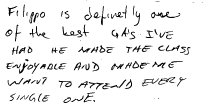 Filippo is definetly one
of the best GAS I'VE
HAD HE MADE THE CLASS
ENJOYABLE AND MADE ME
WANT TO ATTEND EVERY
SINGLE ONE.